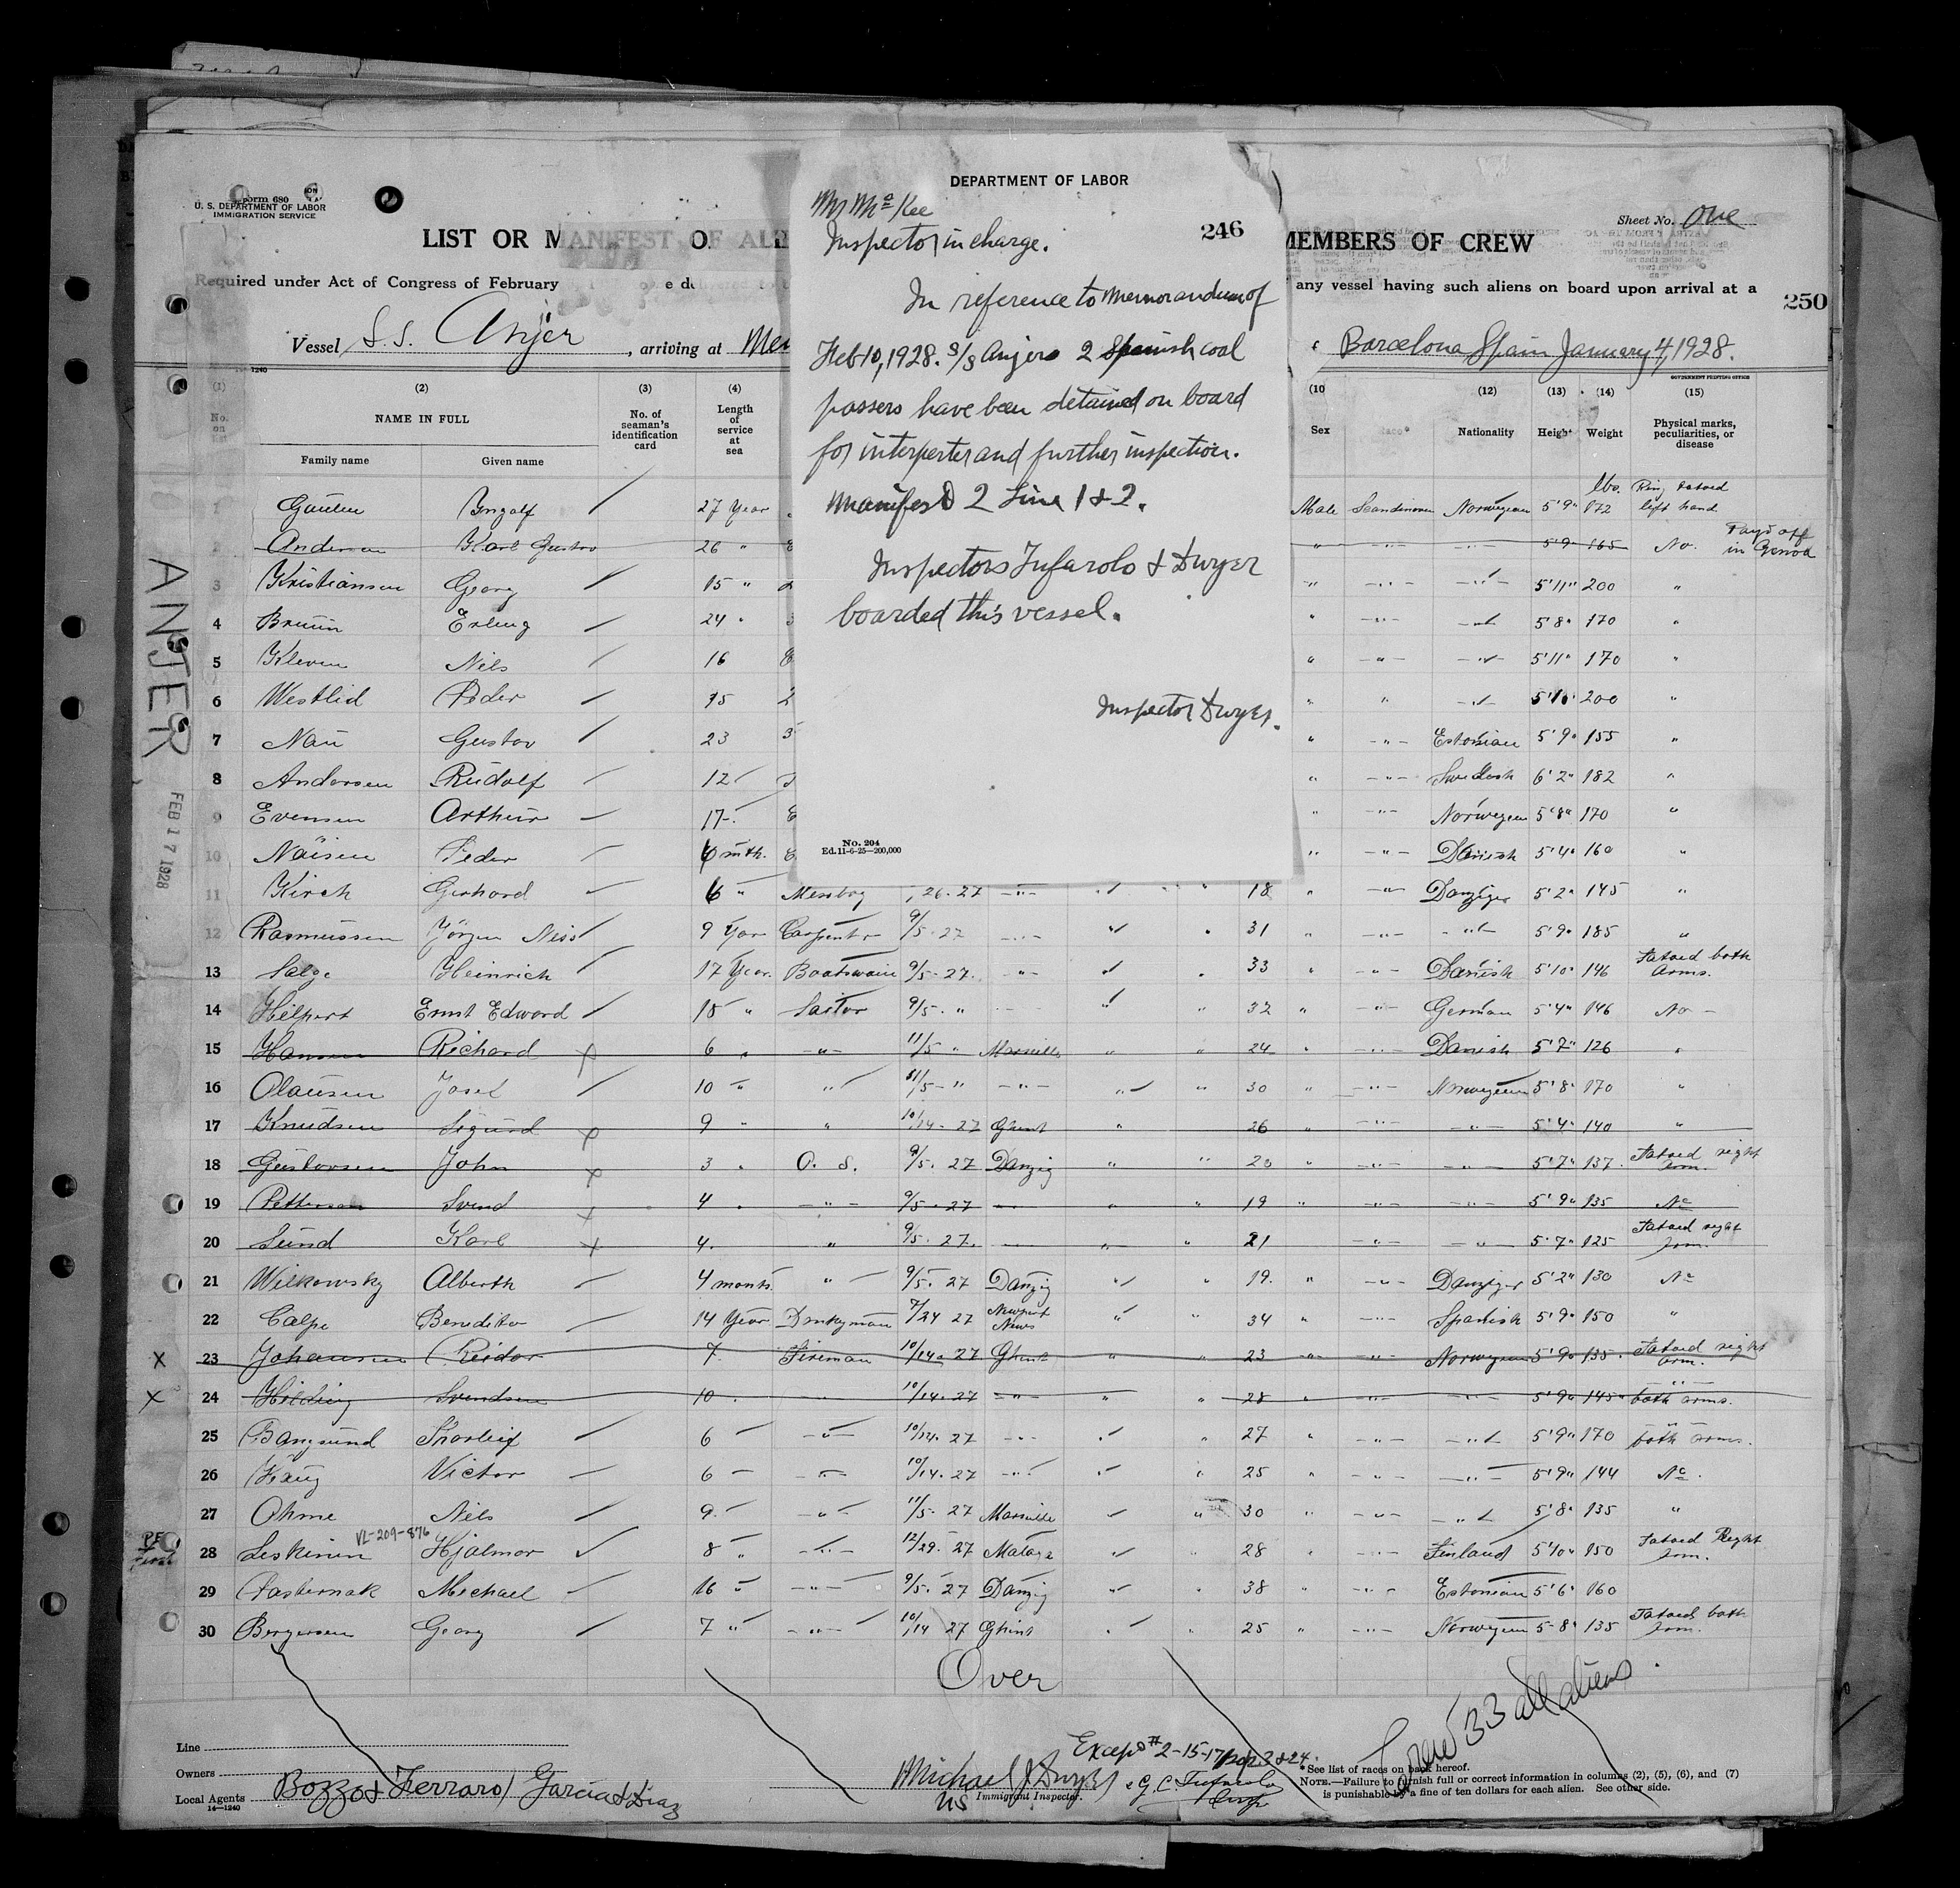 Form 680
U. S. DEPARTMENT OF LABOR
IMMIGRATION SERVICE
LIST OR MANIFEST OF ALIE
MEMBERS OF CREW
Sheet No. One
Required under Act of Congress of February
any vessel having such aliens on board upon arrival at a
250
Vessel S.S. Anjer, arriving at Mer
Barcelona Spain January 4, 1928.
DEPARTMENT OF LABOR
Mr McKee
Inspector in charge.
246
In reference to Memorandum of
Feb 10, 1928. S/S Anjers 2 Spanish coal
passers have been detained on board
for interperter and further inspection.
Manifest 2 Line 1 & 2.
Inspectors Tufarolo & Dwyer
boarded this vessel.
Inspector Dwyer.
No. 204
Ed. 11-6-25—200,000
ANJER
FEB 17 1928
(1) (2) (3) (4) (10 (12) (13) (14) (15)
GOVERNMENT PRINTING OFFICE
No. on list
NAME IN FULL
Family name Given name
No. of seaman's identification card
Length of service at sea
Sex Race* Nationality Height Weight
Physical marks, peculiarities, or disease
1 27 Year Male Scandinavian Norwegian 5'9" lbs. 172 Ring tatoed left hand
2 Anderson Karl Gustav 26 " " -"- -"- 5'9" 165 No. Payd off in Genoa
3 Kristiansen Georg 15 " " -"- -"- 5'11" 200 "
4 Bruun Erling 24 " " -"- -"- 5'8" 170 "
5 Kleven Nils 16 " -"- -"- 5'11" 170 "
6 Westlid Peder 15 " " -"- 200 "
7 Nau Gustav 23 " -"- Estonian 5'9" 155 "
8 Andersen Rudolf 12 " -"- Swedish 6'2" 182 "
9 Evensen Arthur 17 " -"- Norwegian 5'8" 170 "
10 Peder 6 mth. " -"- Danish 5'4" 160 "
11 Kirch Gerhard 6 " Messboy 26-27 -"- " " 18 " -"- Danziger 5'2" 145 "
12 Rasmussen Jörgen Niss 9 Year Carpenter 9/5-27 -"- " " 31 " -"- -"- 5'9" 185 "
13 Salge Heinrich 17 Year. Boatswain 9/5-27. -"- " " 33 " -"- Danish 5'10" 146 Tatoed both arms.
14 Hilpert Ernst Edward 18 " Sailor 9/5-" -"- " " 32 " -"- German 5'4" 146 No -
15 Hansen Richard 6 " -"- 11/5 " Marseille " " 24 " -"- Danish 5'7" 126 "
16 Olausen Josef 10 " " 11/5-" -"- " " 30 " -"- Norwegian 5'8" 170 "
17 Knudsen Sigurd 9 " " 10/14-27 Ghent " 26 -"- -"- 5'4" 140 "
18 Gustavsen John 3 " O. S. 9/5. 27 Danzig " " 20 " -"- -"- 5'7" 137. Tatoed right arm.
19 Pettersen Svend 4 " -"- 9/5-27 -"- " " 19 " -"- -"- 5'9" 135 No
20 Lund Karl 4. " 9/5-27. " " 21 -"- " 5'7" 125 Tatoed right arm.
21 Wilkowsky Alberth 4 month " 9/5. 27 Danzig " " 19. " -"- Danziger 5'2" 130 No
22 Calpe Benedito 14 Year Donkeyman 7/24 27 Newport News " " 34 " -"- Spanish 5'9" 150 "
X 23 Johansen Reidar 7 Fireman 10/14-27 Ghent " " 23 -"- -"- Norwegian 5'9" 135. Tatoed right arm.
X 24 Hilding Svendsen 10 -"- 10/14-27 -"- " " 28 " -"- -"- 5'9" 145 -"- both arms.
25 Bangsund Thorleif 6 -"- 10/14. 27 -"- " " 27 " -"- -"- 5'9" 170 -"- both arms.
26 Victor 6 -"- 10/14. 27 -"- " " 25 " -"- -"- 5'9" 144 No.
27 Ohme Nils 9. -"- 11/5-27 Marseille " 30 " -"- -"- 5'8" 135 "
VL-209-876
28 Leskinen Hjalmar 8 " -"- 12/29-27 Malaga " " 28 " -"- Finland 5'10" 150 Tatoed Right arm.
29 Pasternak Michael 16 " -"- 9/5. 27 Danzig " " 38 " -"- Estonian 5'6" 160
30 Bergersen Georg 7 " -"- 10/14 27 Ghent " " 25 " -"- Norwegian 5-8" 135 Tatoed both arm.
Over
Crew 33 all aliens
Line
Owners
Local Agents Bozzo & Ferraro / Garcia & Diaz
14—1240
Except # 2-15-17
Michael J Dwyer
US Immigrant Inspector.
*See list of races on back hereof.
NOTE.—Failure to furnish full or correct information in columns (2), (5), (6), and (7)
is punishable by a fine of ten dollars for each alien. See other side.